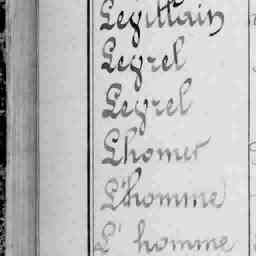 Leyittain
Leyrel
Leyrel
Lhomer
L'homme
L' homme